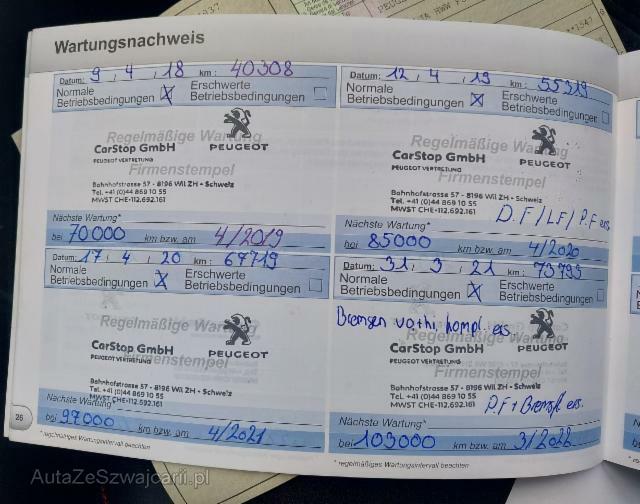 Wartungsnachweis
Datum: 9 , 4 , 18 km : 40308
Normale Betriebsbedingungen X Erschwerte Betriebsbedingungen
Regelmäßige Wartung
CarStop GmbH
PEUGEOT VERTRETUNG
PEUGEOT
Firmenstempel
Bahnhofstrasse 57 - 8196 Wil ZH - Schweiz
Tel. +41 (0)44 869 10 55
MWST CHE-112.692.161
Nächste Wartung*
bei 70000 km bzw. am 4/2019
Datum: 12 , 4 , 19 km : 55319
Normale Betriebsbedingungen X Erschwerte Betriebsbedingungen
Regelmäßige Wartung
CarStop GmbH
PEUGEOT VERTRETUNG
PEUGEOT
Firmenstempel
Bahnhofstrasse 57 - 8196 Wil ZH - Schweiz
Tel. +41 (0)44 869 10 55
MWST CHE-112.692.161
D.F/LF/P.F ers.
Nächste Wartung*
bei 85000 km bzw. am 4/2020
Datum: 17 , 4 , 20 km : 67719
Normale Betriebsbedingungen X Erschwerte Betriebsbedingungen
Regelmäßige Wartung
CarStop GmbH
PEUGEOT VERTRETUNG
PEUGEOT
Firmenstempel
Bahnhofstrasse 57 - 8196 Wil ZH - Schweiz
Tel. +41 (0)44 869 10 55
MWST CHE-112.692.161
Nächste Wartung*
bei 97000 km bzw. am 4/2021
Datum: 31 , 3 , 21 km :
Normale Betriebsbedingungen X Erschwerte Betriebsbedingungen
Bremsen vo+hi, kompl. ers.
Regelmäßige Wartung
CarStop GmbH
PEUGEOT VERTRETUNG
PEUGEOT
Firmenstempel
Bahnhofstrasse 57 - 8196 Wil ZH - Schweiz
Tel. +41 (0)44 869 10 55
MWST CHE-112.692.161
P.F + Bremsfl. ers.
Nächste Wartung*
bei 103000 km bzw. am 3/2022
26
* regelmäßiges Wartungsintervall beachten
* regelmäßiges Wartungsintervall beachten
AutaZeSzwajcarii.pl